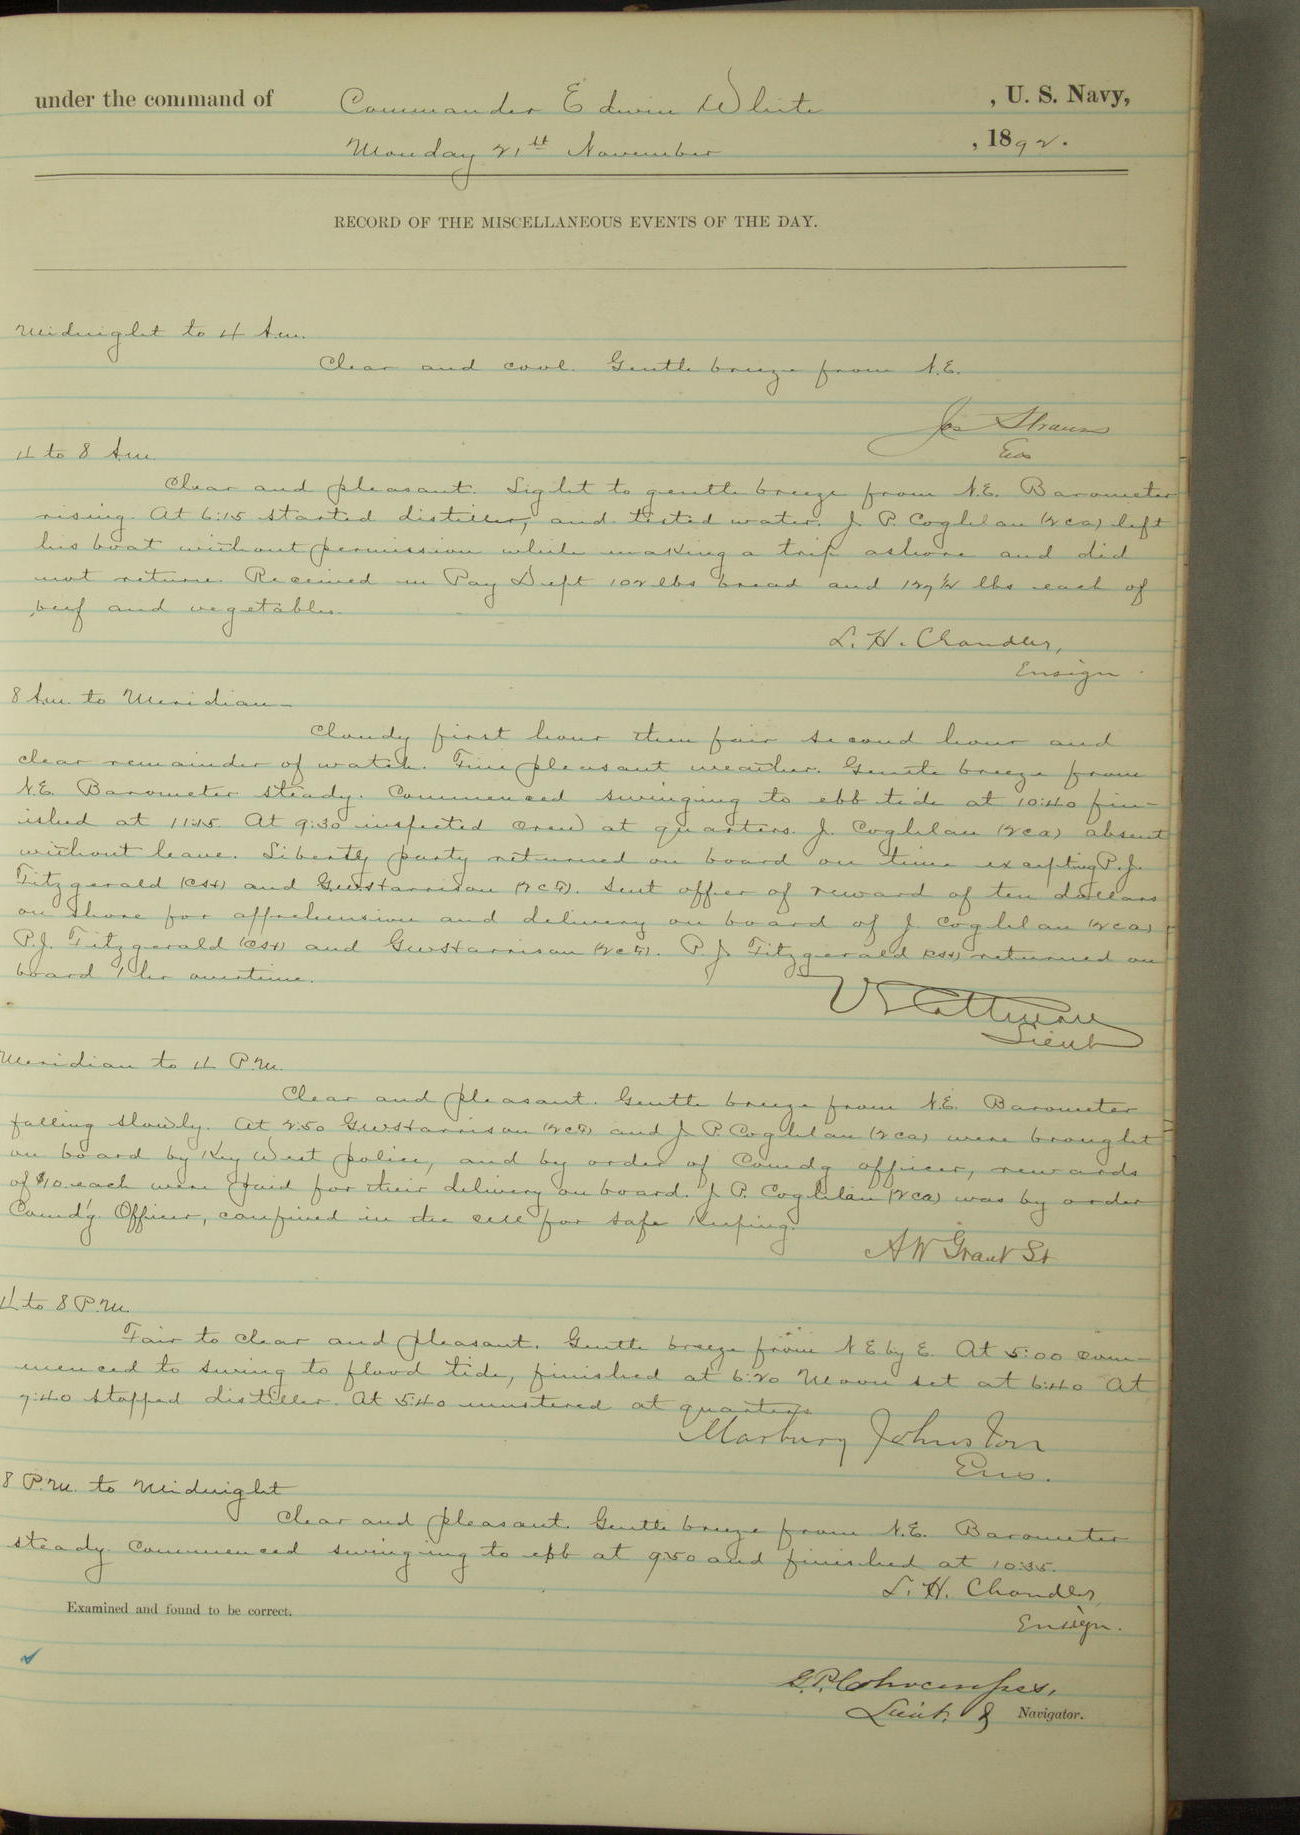 under the command of Commander Edwin White, U. S. Navy,
Monday 21st November, 1892.
RECORD OF THE MISCELLANEOUS EVENTS OF THE DAY.
Midnight to 4 A.m.
Clear and cool. Gentle breeze from N.E.
Jos Strauss
Ens
4 to 8 A.m.
Clear and pleasant. Light to gentle breeze from N.E. Barometer
rising. At 6:15 started distiller, and tested water. J. P. Coghlan (2ca) left
his boat without permission while making a trip ashore and did
not return. Received in Pay Dept 102 lbs bread and 127½ lbs each of
beef and vegetables.
L. H. Chandler,
Ensign.
8 A.m. to Meridian
Cloudy first hour then fair second hour and
clear remainder of watch. Fine pleasant weather. Gentle breeze from
N.E. Barometer steady. Commenced swinging to ebb tide at 10:40 fin-
ished at 11:15. At 9:30 inspected crew at quarters. J. Coghlan (2ca) absent
without leave. Liberty party returned on board on time excepting P. J.
Fitzgerald and G.W. Harrison. Sent offer of reward of ten dollars
on shore for apprehension and delivery on board of J Coghlan (2ca)
P.J. Fitzgerald and G.W. Harrison. P. J. Fitzgerald returned on
board 1 hr overtime.
Lieut
Meridian to 4 P.M.
Clear and pleasant. Gentle breeze from N.E. Barometer
falling slowly. At 2:50 G.W. Harrison and J. P. Coghlan (2ca) were brought
on board by Key West police, and by order of Comdg officer, rewards
of $10 each were paid for their delivery on board. J. P. Coghlan (2ca) was by order
Comd'g Officer, confined in the cell for safe keeping.
A W Grant Lt
4 to 8 P.M.
Fair to clear and pleasant. Gentle breeze from N E by E. At 5:00 com-
menced to swing to flood tide, finished at 6:20 Moon set at 6:40 At
7:40 stopped distiller. At 5:40 mustered at quarters
Marbury Johnston
Ens.
8 P.M. to Midnight
Clear and pleasant. Gentle breeze from N.E. Barometer
steady. Commenced swinging to ebb at 9:50 and finished at 10:35.
L. H. Chandler,
Ensign.
Examined and found to be correct.
Lieut. & Navigator.